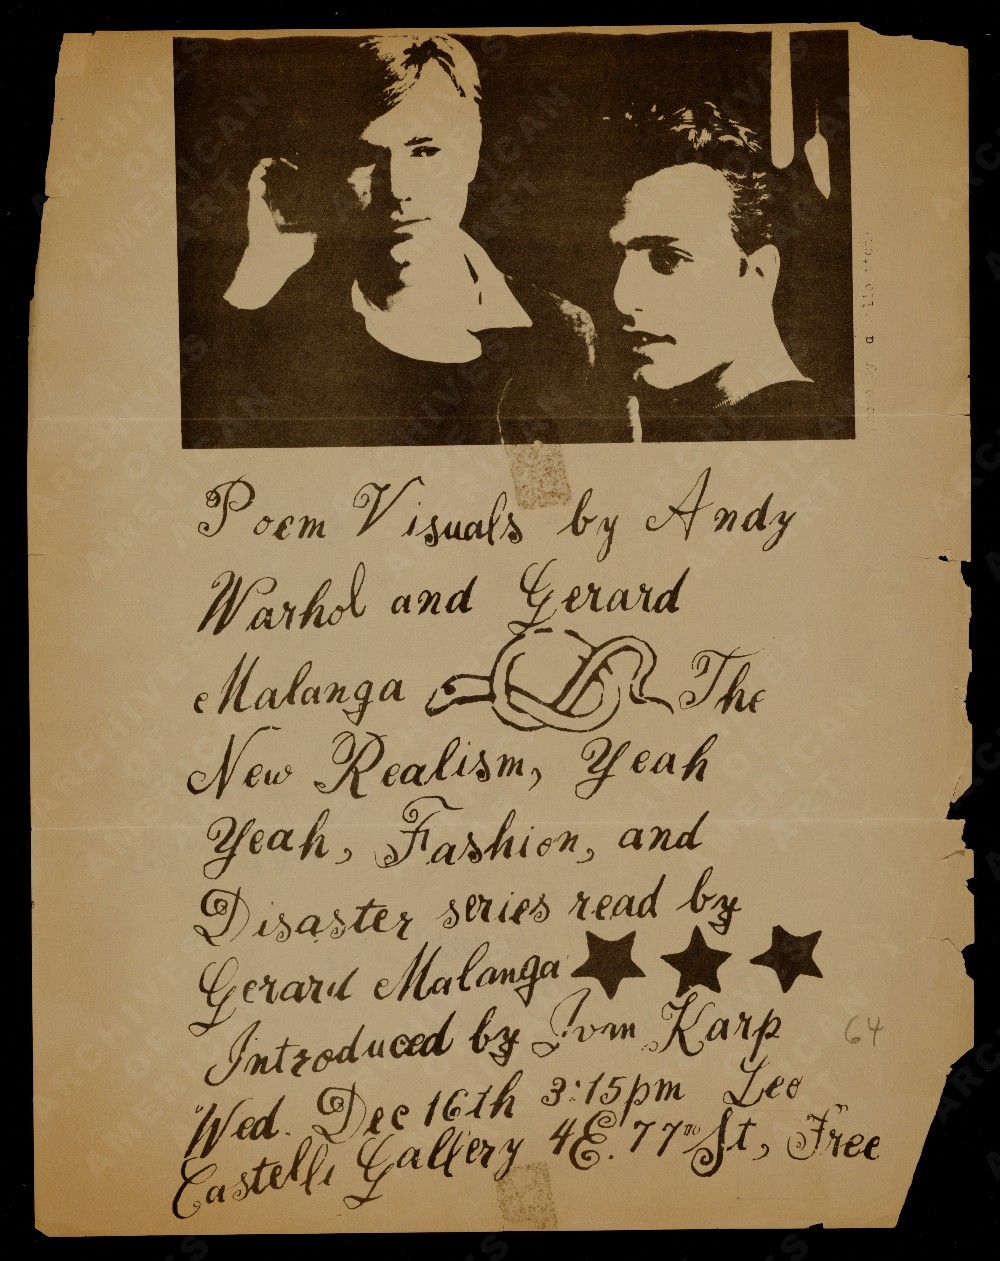 Poem Visuals by Andy
Warhol and Gerard
Malanga The
New Realism, Yeah
Yeah, Fashion, and
Disaster series read by
Gerard Malanga
Introduced by Ivan Karp
64
Wed. Dec 16th 3:15pm Leo
Castelli Gallery 4E. 77th St, Free
ARCHIVES OF AMERICAN ART